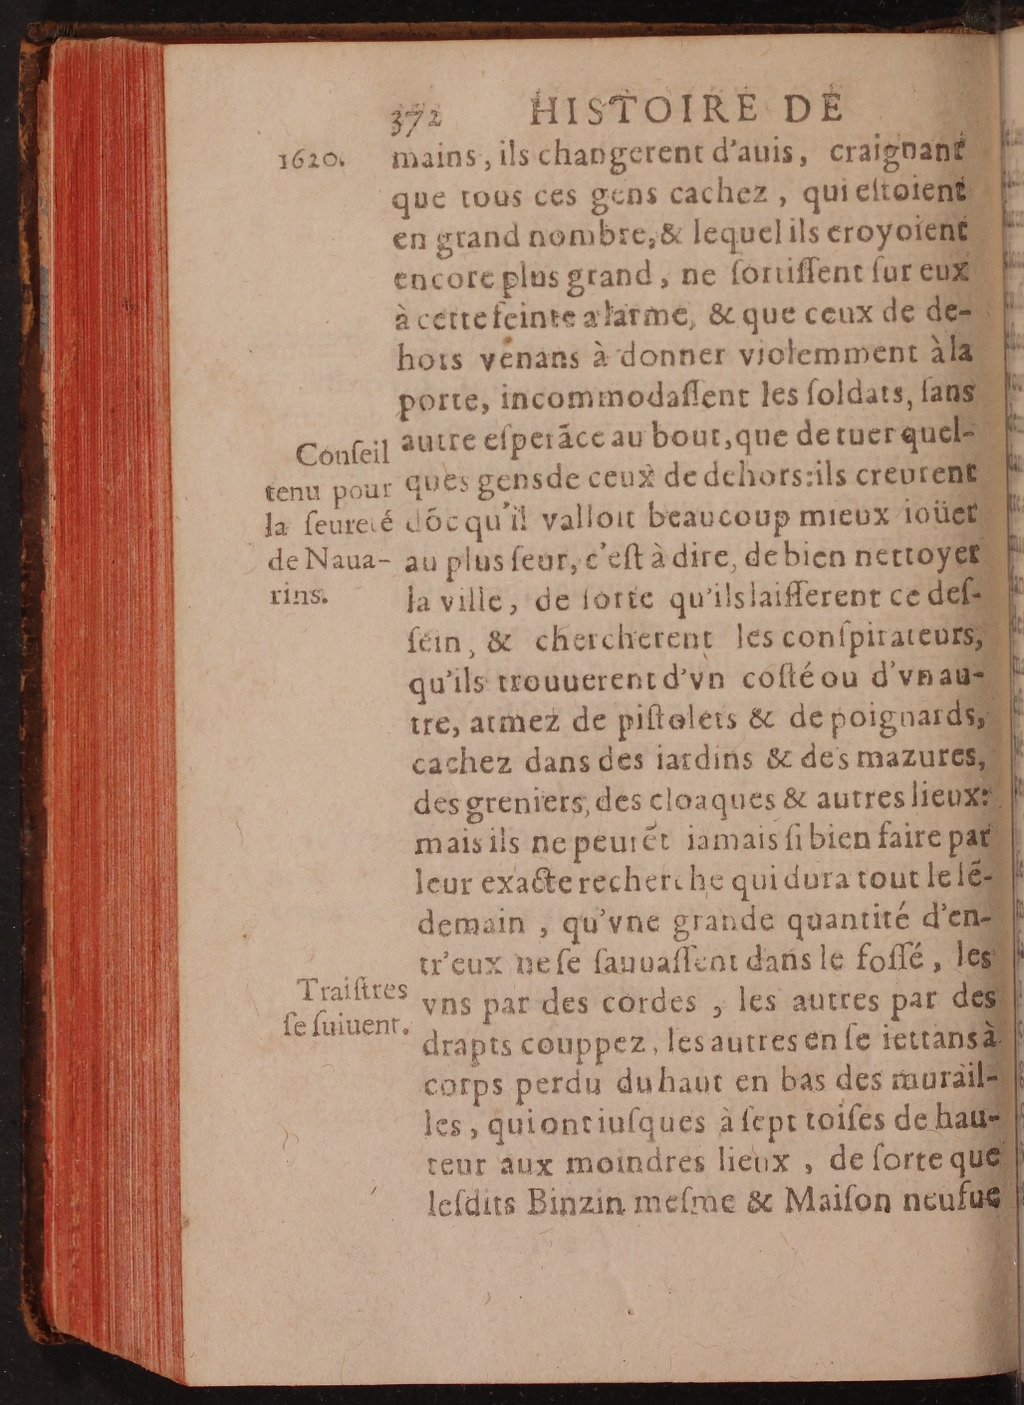 372 HISTOIRE DE
1620.
mains, ils changerent d'auis, craignant
que tous ces gens cachez, qui estoient
en grand nombre, & lequel ils croyoient
encore plus grand, ne fortifſent ſur eux
à cette feinte alarme, & que ceux de de-
hors venans à donner violemment à la
porte, incommodaſſent les ſoldats, ſans
autre eſperāce au bout, que de tuer quel-
ques gens de ceux de dehors: ils creurent
dōc qu'il valloit beaucoup mieux ioüer
au plus ſeur, c'eſt à dire, de bien nettoyer
la ville, de ſorte qu'ils laiſſerent ce deſ-
ſein, & chercherent les conſpirateurs,
qu'ils trouuerent d'vn coſté ou d'vn au-
tre, armez de piſtolets & de poignards,
cachez dans des iardins & des mazures,
des greniers, des cloaques & autres lieux:
mais ils ne peurēt iamais ſi bien faire par
leur exacte recherche qui dura tout le lē-
demain, qu'vne grande quantité d'en-
tr'eux ne ſe ſauuaſſent dans le foſſé, les
vns par des cordes, les autres par des
drapts couppez, les autres en ſe iettans à
corps perdu du haut en bas des murail-
les, qui ont iuſques à ſept toiſes de hau-
teur aux moindres lieux, de ſorte que
leſdits Binzin meſme & Maiſon neufue
Conſeil
tenu pour
la ſeureté
de Naua-
rins.
Traiſtres
ſe ſuiuent.